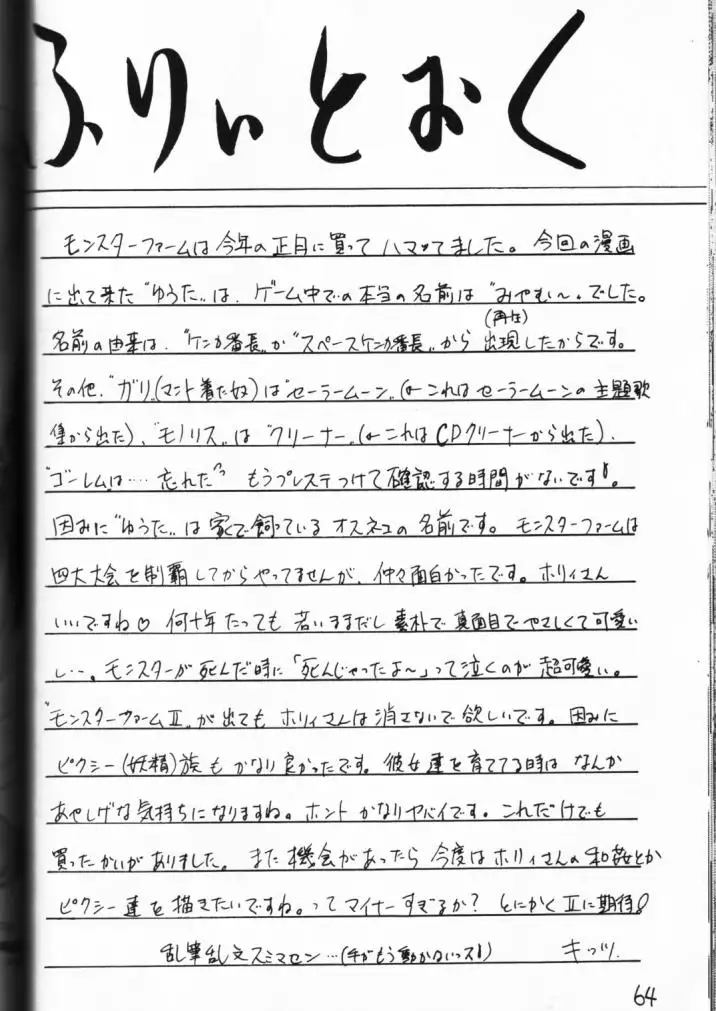 ふりぃとおく
モンスターファームは今年の正月に買ってハマッてました。今回の漫画
に出て来た"ゆうた"は、ゲーム中での本当の名前は"みやむ〜"でした。
(再生)
名前の由来は、"ケンカ番長"か"スペースケンカ番長"から出現したからです。
その他、"ガリ"(マント着た奴)は"セーラームーン"(←これはセーラームーンの主題歌
集から出た)、"モノリス"は"クリーナー"(←これはCDクリーナーから出た)、
"ゴーレムは…忘れた" もうプレステつけて確認する時間がないです!。
因みに"ゆうた"は家で飼っているオスネコの名前です。モンスターファームは
四大大会を制覇してからやってませんが、仲々面白かったです。ホリィさん
いいですね♡ 何十年たっても若いままだし素朴で真面目でやさしくて可愛い
し…。モンスターが死んだ時に「死んじゃったよ〜」って泣くのが超可愛い。
"モンスターファームⅡ"が出てもホリィさんは消さないで欲しいです。因みに
ピクシー(妖精)族もかなり良かったです。彼女達を育ててる時はなんか
あやしげな気持ちになりますね。ホントかなりヤバイです。これだけでも
買ったかいがありました。また機会があったら今度はホリィさんの和姦とか
ピクシー達を描きたいですね。ってマイナーすぎるか? とにかくⅡに期待!
乱筆乱文スミマセン…(手がもう動かないっス!) キッツ.
64